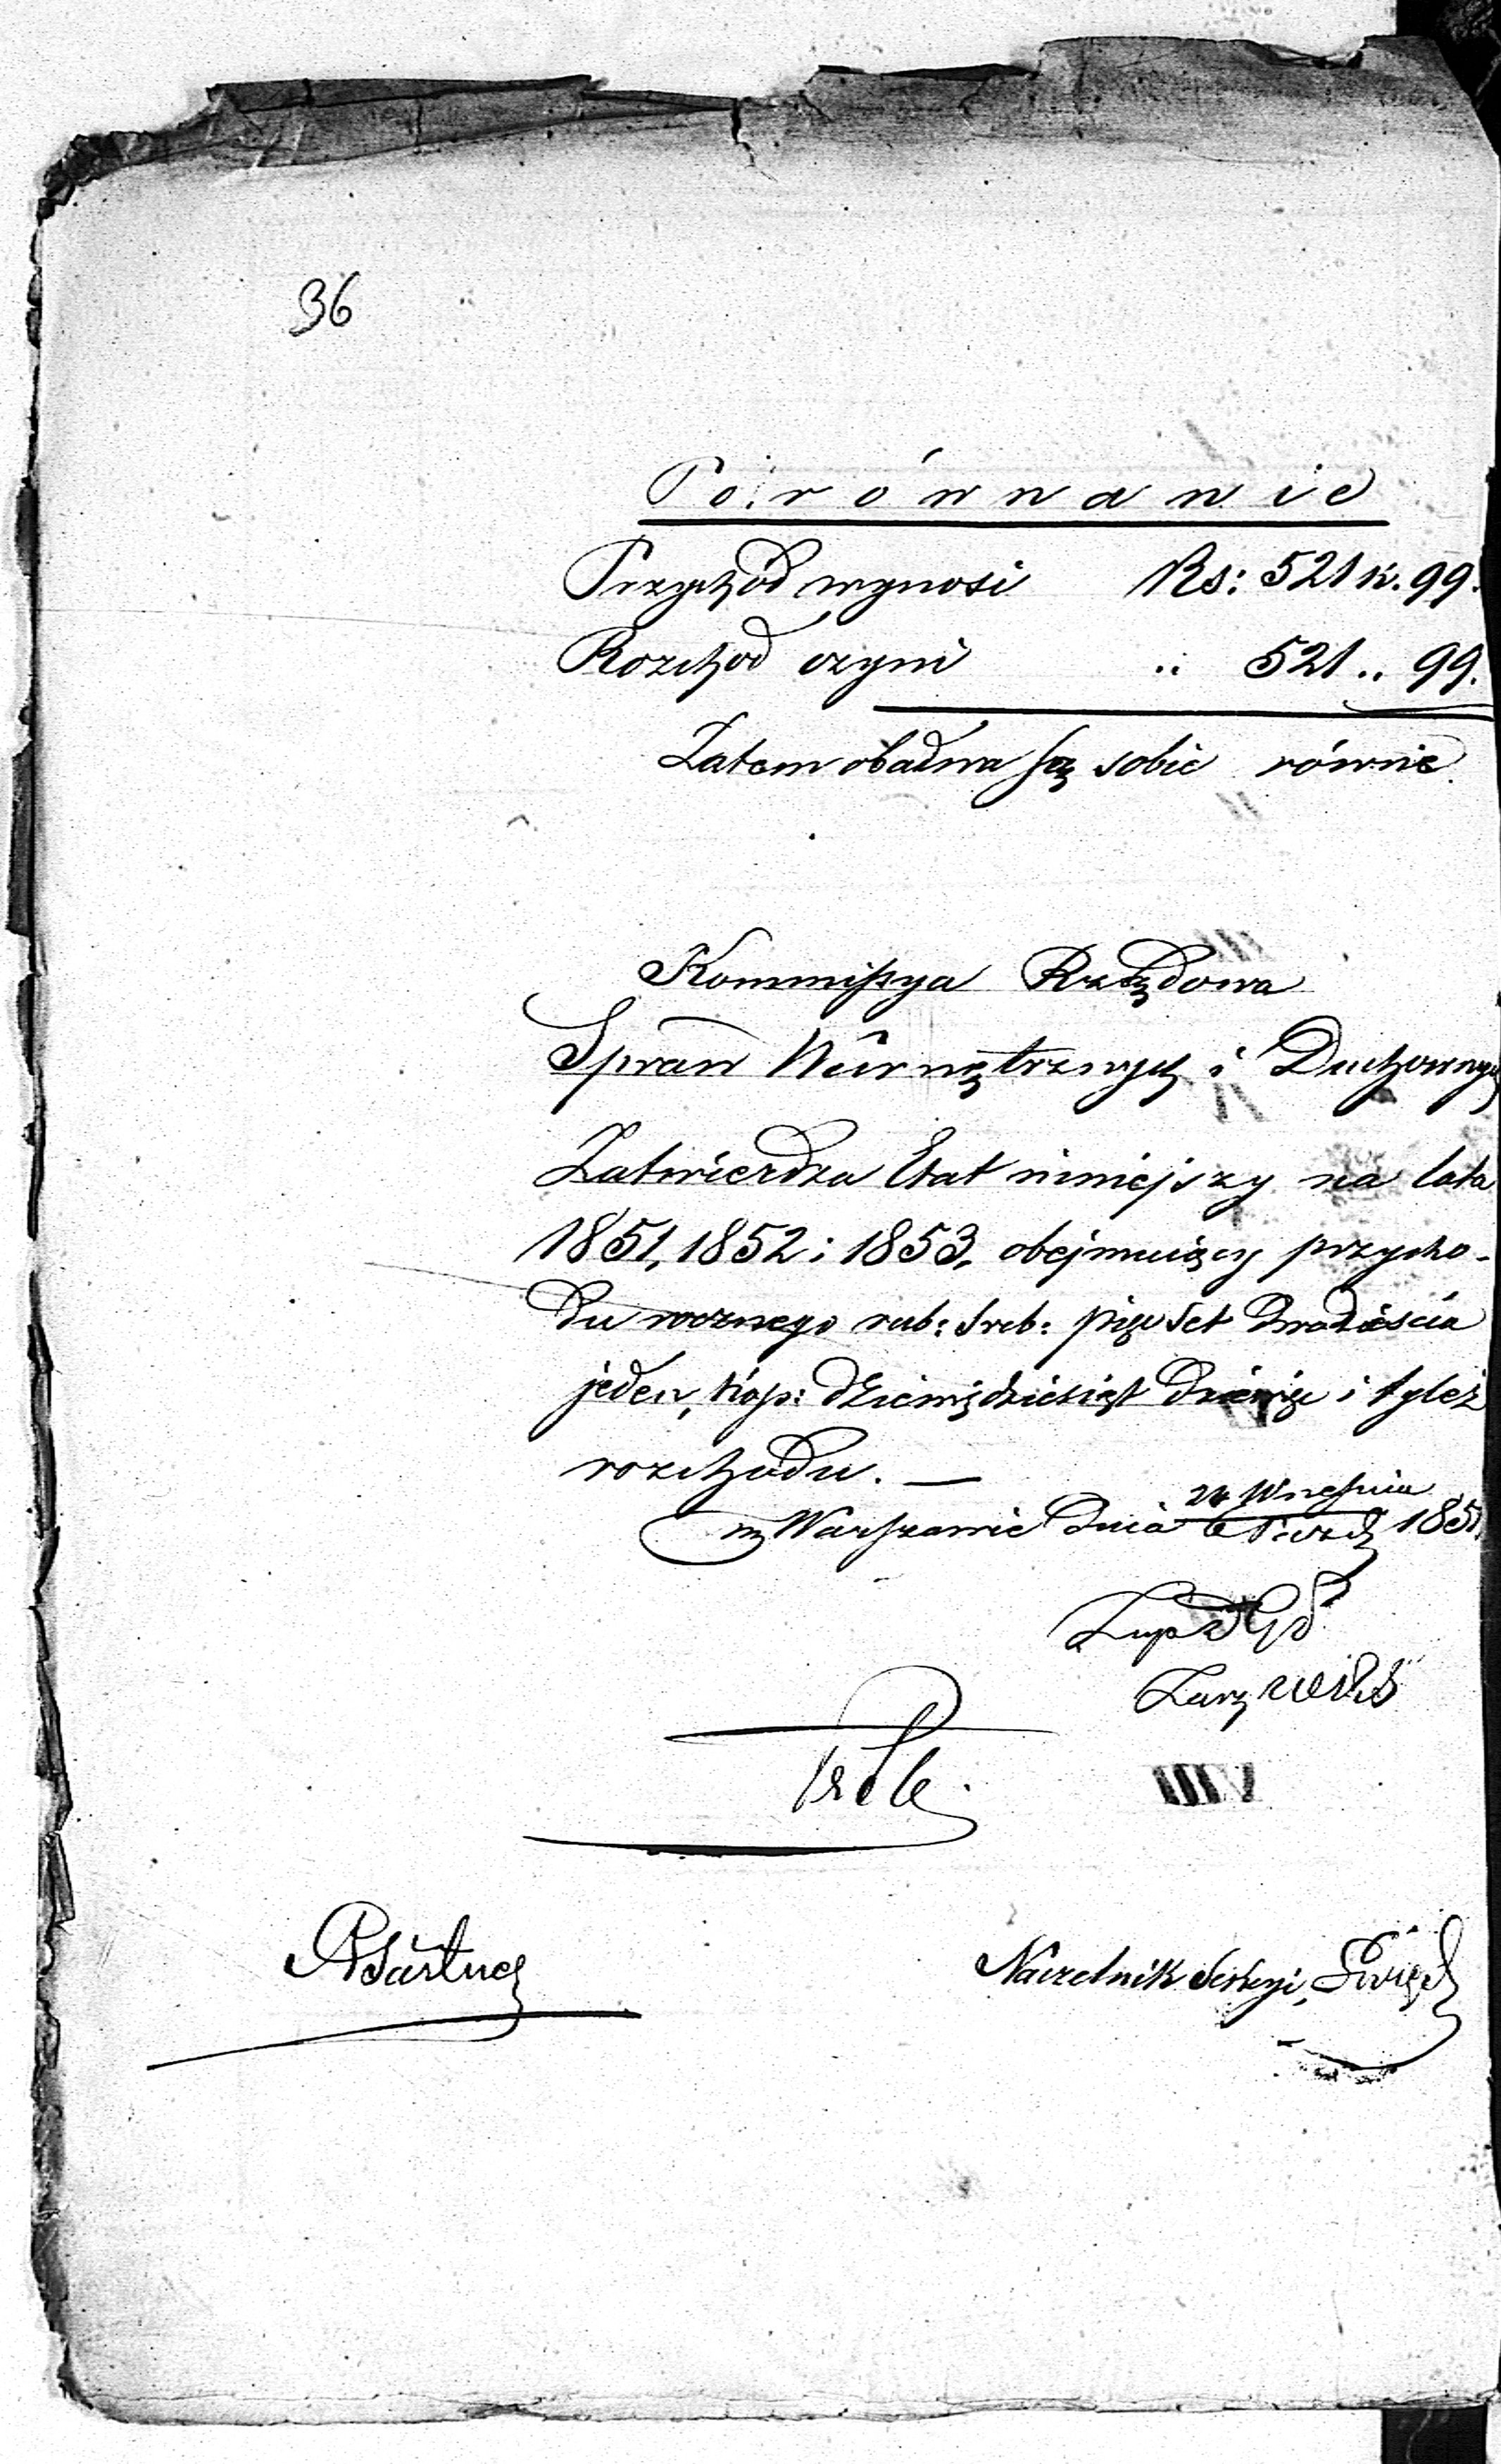 36
Porównanie
Przychód wynosi Rs: 521 k. 99.
Rozchod czyni .. 521 .. 99.
Zatem obadwa są sobie równe
Kommissya Rządowa
Spraw Wewnętrznych i Duchownych
Zatwierdza Etat niniejszy na lata
1851, 1852 i 1853, obejmuiący przycho-
du rocznego rub: sreb: pięćset dwadzieścia
jeden, kop: dziewiędziesiąt dziewięć i tyleż
rozchodu. —
w Warszawie dnia 24 Września 6 Paźdz 1851
Naczelnik Sekcyi,